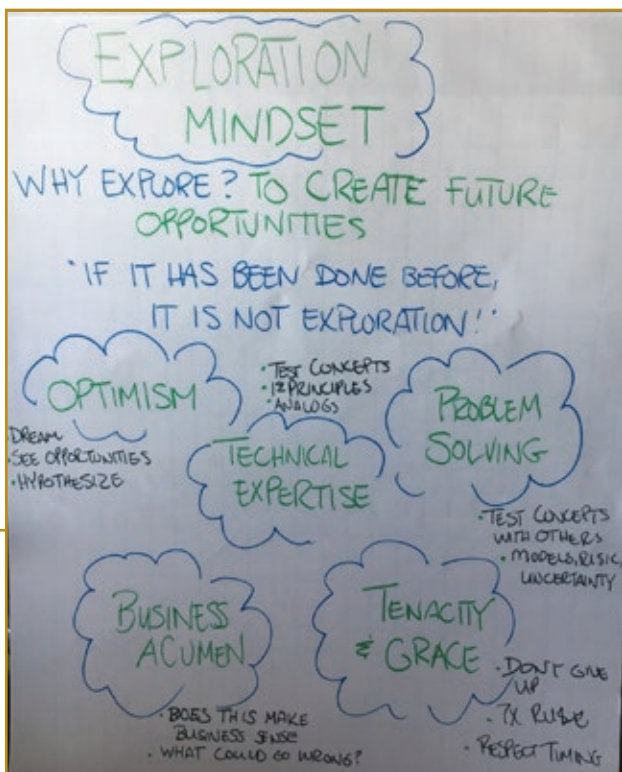 EXPLORATION
MINDSET
WHY EXPLORE? TO CREATE FUTURE
OPPORTUNITIES
"IF IT HAS BEEN DONE BEFORE,
IT IS NOT EXPLORATION!"
OPTIMISM
• DREAM
• SEE OPPORTUNITIES
• HYPOTHESIZE
• TEST CONCEPTS
• 1st PRINCIPLES
• ANALOGS
TECHNICAL
EXPERTISE
PROBLEM
SOLVING
• TEST CONCEPTS
WITH OTHERS
• MODELS, RISK,
UNCERTAINTY
BUSINESS
ACUMEN
• DOES THIS MAKE
BUSINESS SENSE
• WHAT COULD GO WRONG?
TENACITY
& GRACE
• DON'T GIVE
UP
• 7X RULE
• RESPECT TIMING